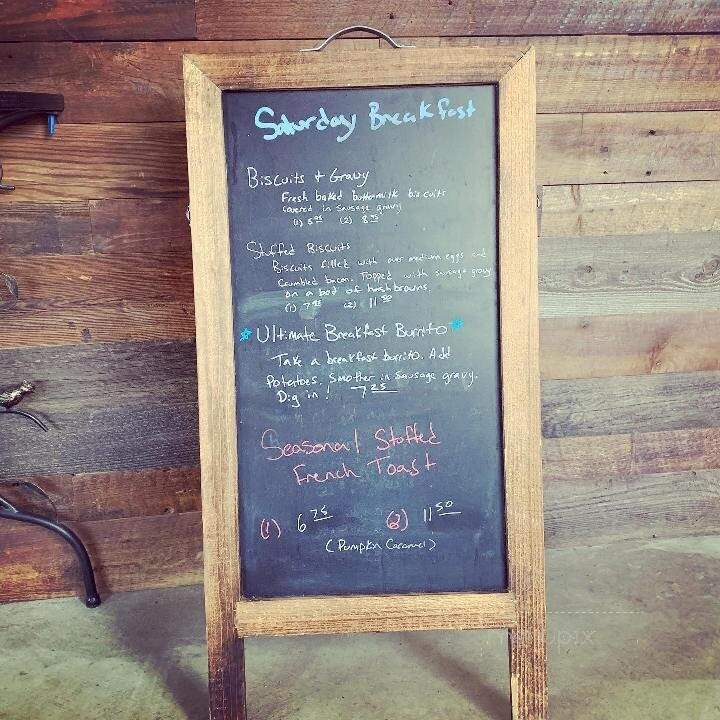 Saturday Breakfast
Biscuits + Gravy
Fresh baked buttermilk biscuits
covered in sausage gravy
(1) (2)
Stuffed Biscuits
Biscuits filled with over medium eggs and
crumbled bacon. Topped with sausage gravy
on a bed of hashbrowns.
(1) (2) 11
Ultimate Breakfast Burrito
Take a breakfast burrito. Add
Potatoes. Smother in Sausage gravy.
Dig in! 7 25
Seasonal Stuffed
French Toast
(1) 6 75 (2) 11 50
(Pumpkin Caramel)